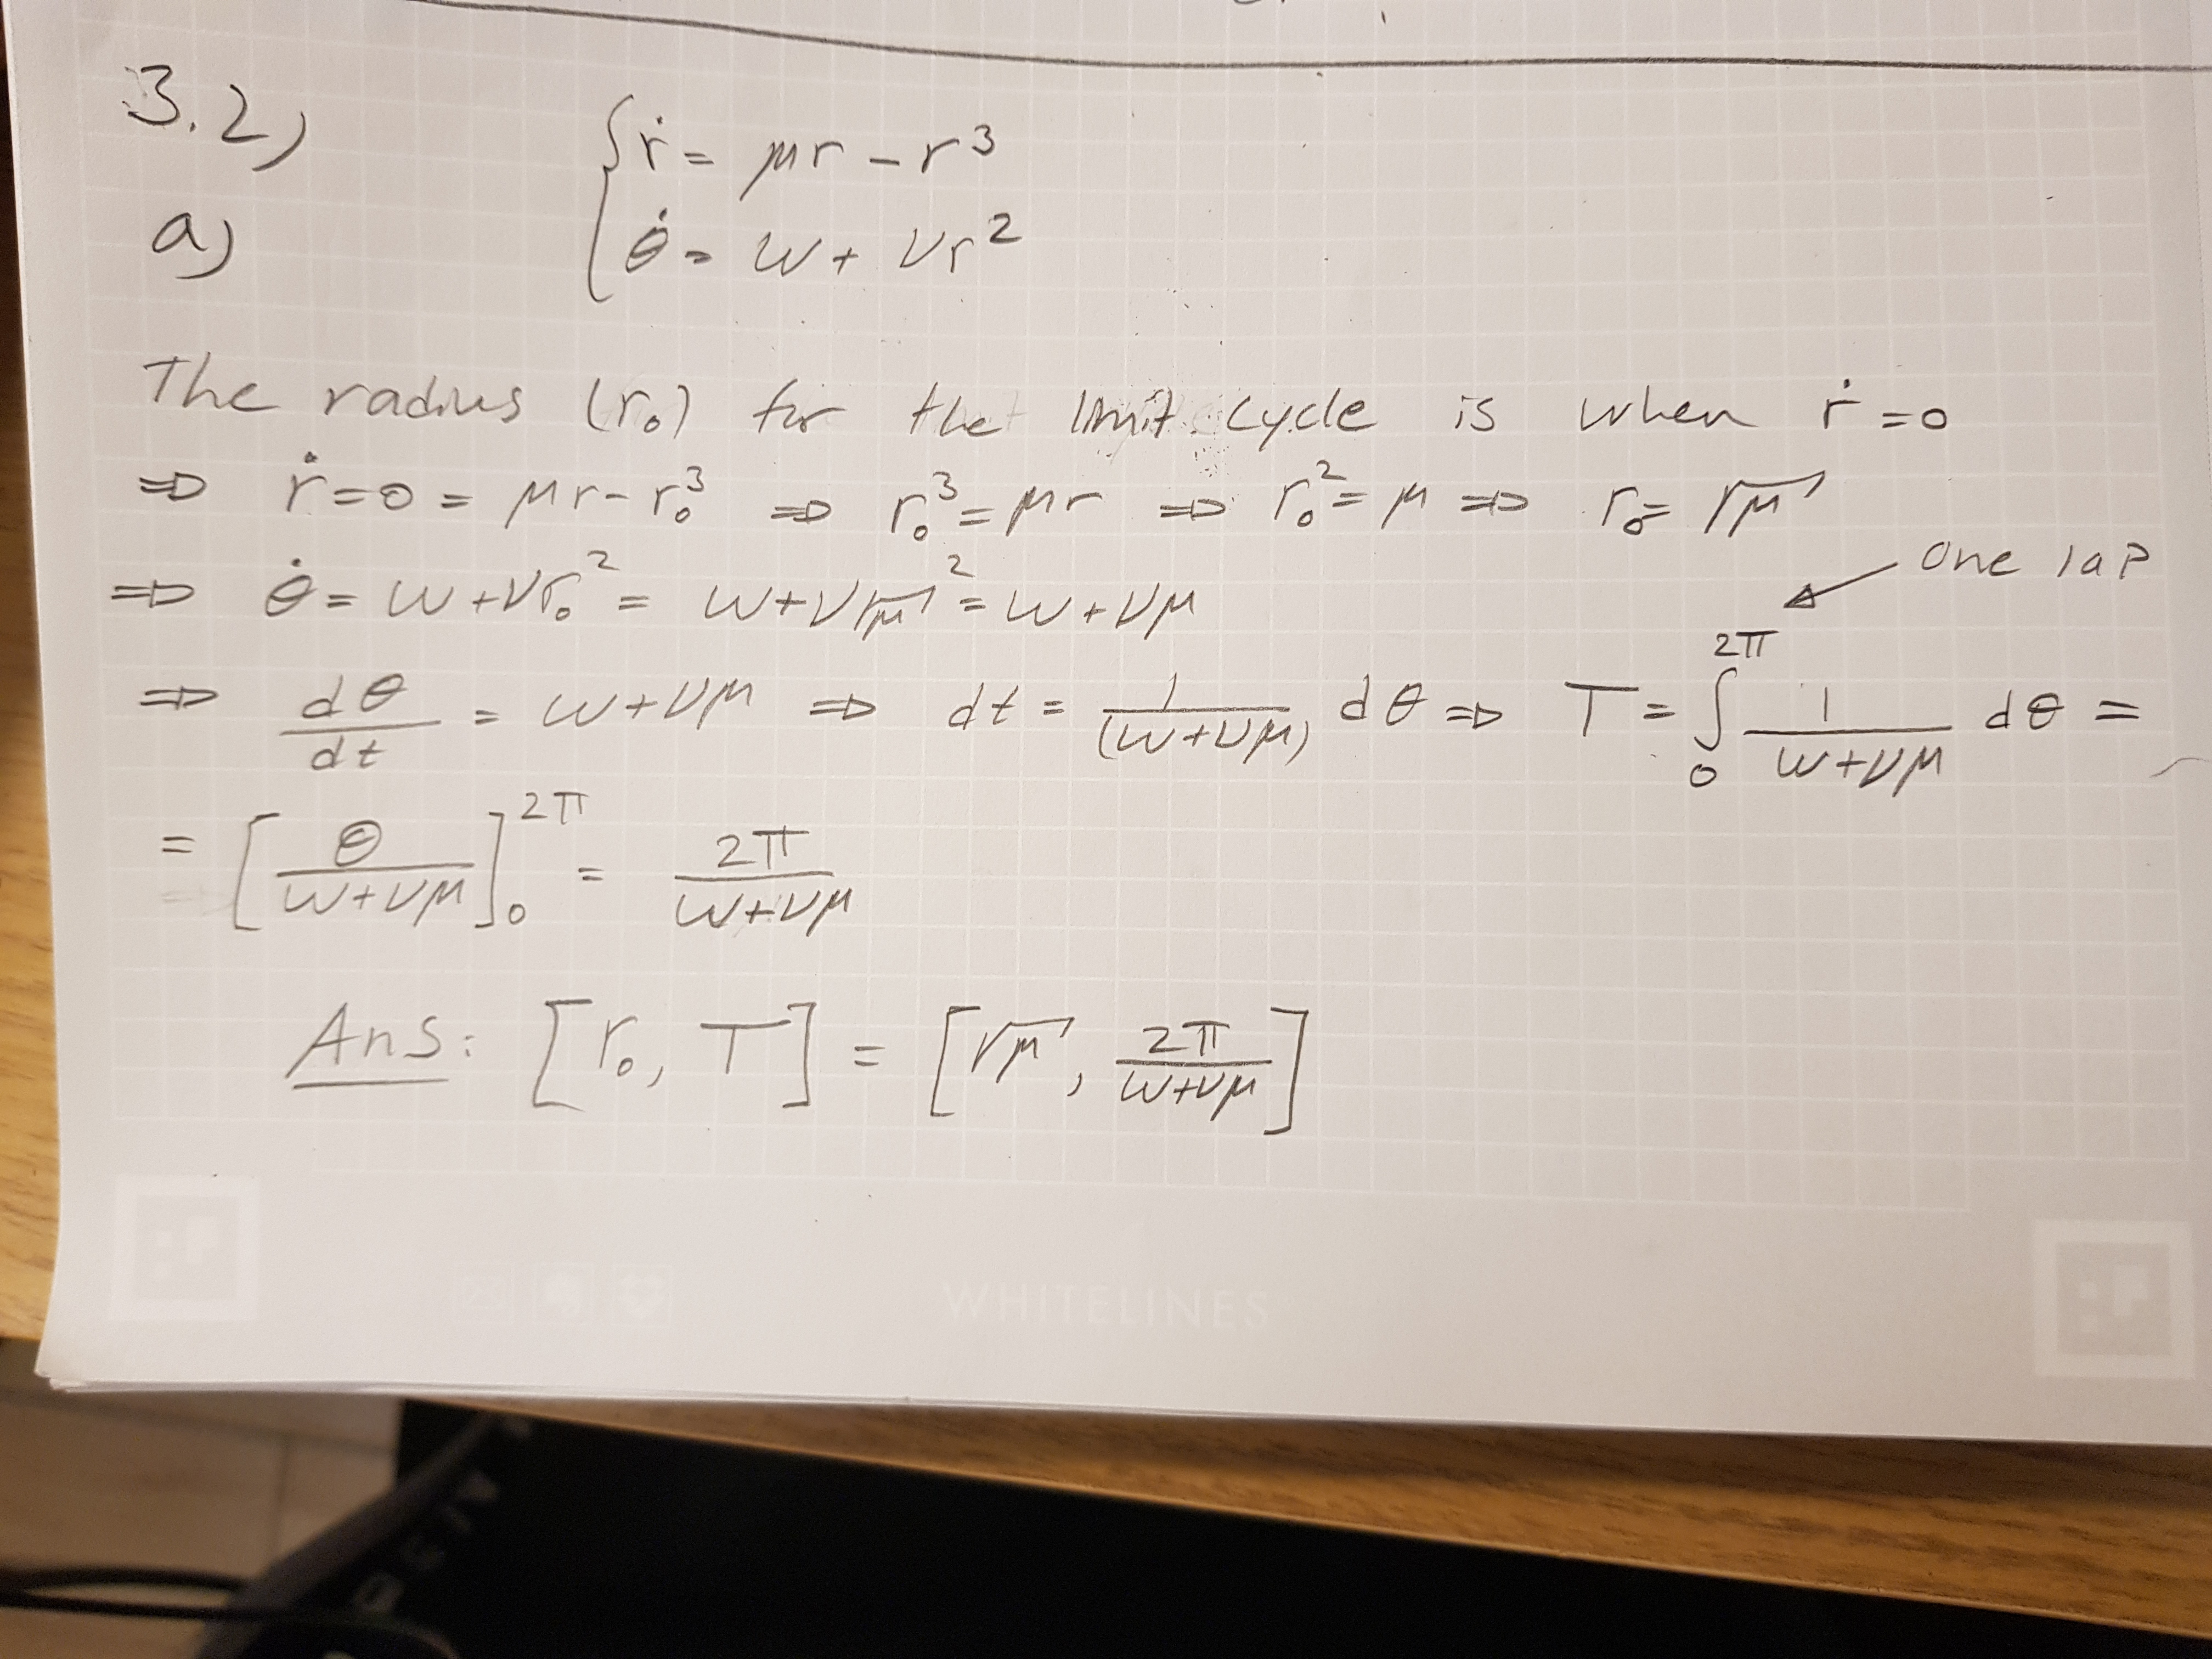 3.2)
a)
{ ṙ = μr - r³
θ̇ = ω + νr²
The radius (r₀) for the limit cycle is when ṙ = 0
⇒ ṙ = 0 = μr - r₀³ ⇒ r₀³ = μr ⇒ r₀² = μ ⇒ r₀ = √μ
⇒ θ̇ = ω + νr₀² = ω + ν√μ² = ω + νμ
one lap
⇒ dθ/dt = ω + νμ ⇒ dt = 1/(ω+νμ) dθ ⇒ T = ∫₀^2π 1/(ω+νμ) dθ =
= [θ/(ω+νμ)]₀^2π = 2π/(ω+νμ)
Ans: [r₀, T] = [√μ, 2π/(ω+νμ)]
WHITELINES